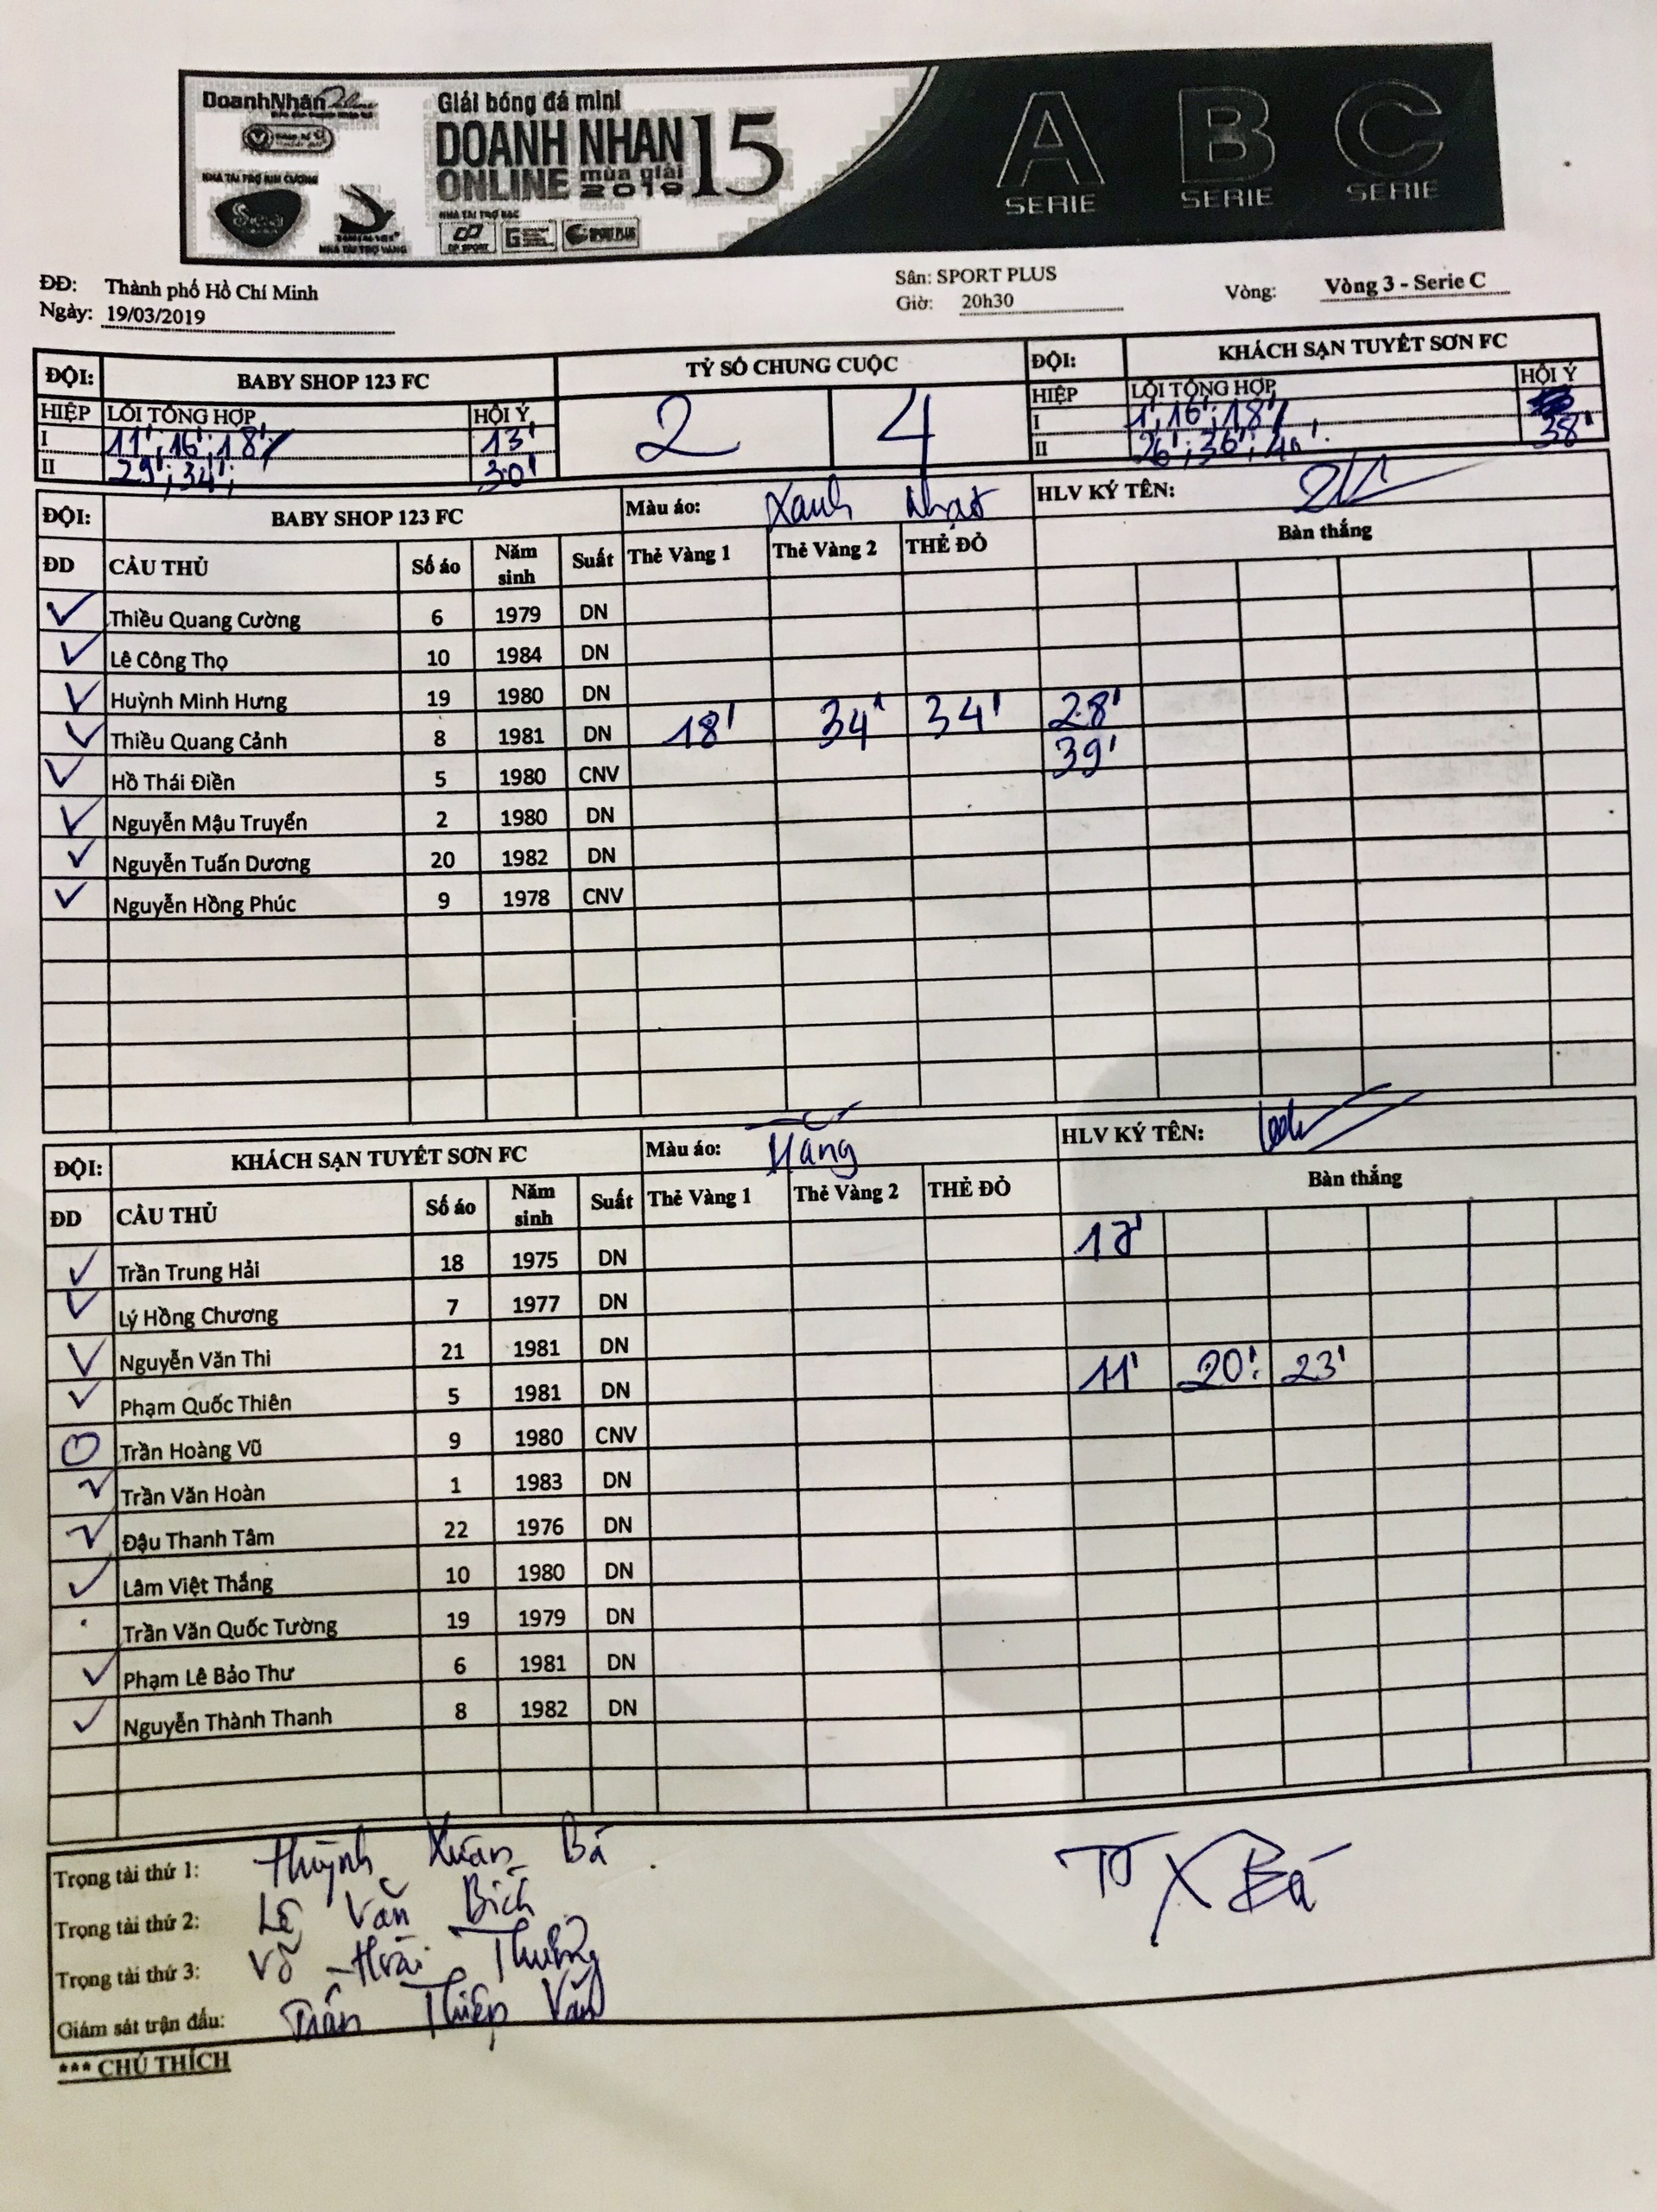 DoanhNhân Online
Giải bóng đá mini
DOANH NHAN 15
ONLINE mùa giải 2019
NHÀ TÀI TRỢ KIM CƯƠNG
NHÀ TÀI TRỢ VÀNG
NHÀ TÀI TRỢ BẠC
SPORT PLUS
A SERIE B SERIE C SERIE
ĐĐ: Thành phố Hồ Chí Minh Sân: SPORT PLUS
Ngày: 19/03/2019 Giờ: 20h30 Vòng: Vòng 3 - Serie C
ĐỘI: BABY SHOP 123 FC TỶ SỐ CHUNG CUỘC ĐỘI: KHÁCH SẠN TUYẾT SƠN FC
HIỆP LỖI TỔNG HỢP HỘI Ý 2 4 HIỆP LỖI TỔNG HỢP HỘI Ý
I 11'; 16'; 18' 13' I 1'; 16'; 18'
II 29'; 34'; 30' II 26'; 36'; 40' 38'
ĐỘI: BABY SHOP 123 FC Màu áo: Xanh Nhạt HLV KÝ TÊN:
ĐD CẦU THỦ Số áo Năm sinh Suất Thẻ Vàng 1 Thẻ Vàng 2 THẺ ĐỎ Bàn thắng
Thiều Quang Cường 6 1979 DN
Lê Công Thọ 10 1984 DN
Huỳnh Minh Hưng 19 1980 DN
Thiều Quang Cảnh 8 1981 DN 18' 34' 34' 28'
Hồ Thái Điền 5 1980 CNV 39'
Nguyễn Mậu Truyển 2 1980 DN
Nguyễn Tuấn Dương 20 1982 DN
Nguyễn Hồng Phúc 9 1978 CNV
ĐỘI: KHÁCH SẠN TUYẾT SƠN FC Màu áo: HLV KÝ TÊN:
ĐD CẦU THỦ Số áo Năm sinh Suất Thẻ Vàng 1 Thẻ Vàng 2 THẺ ĐỎ Bàn thắng
Trần Trung Hải 18 1975 DN 18'
Lý Hồng Chương 7 1977 DN
Nguyễn Văn Thi 21 1981 DN
Phạm Quốc Thiên 5 1981 DN 11' 20' 23'
Trần Hoàng Vũ 9 1980 CNV
Trần Văn Hoàn 1 1983 DN
Đậu Thanh Tâm 22 1976 DN
Lâm Việt Thắng 10 1980 DN
Trần Văn Quốc Tường 19 1979 DN
Phạm Lê Bảo Thư 6 1981 DN
Nguyễn Thành Thanh 8 1982 DN
Trọng tài thứ 1: Huỳnh Xuân Bá
Trọng tài thứ 2: Lê Văn Bích
Trọng tài thứ 3: Võ Hoài Thương
Giám sát trận đấu: Trần Thiệp Văn
X Bá
*** CHÚ THÍCH